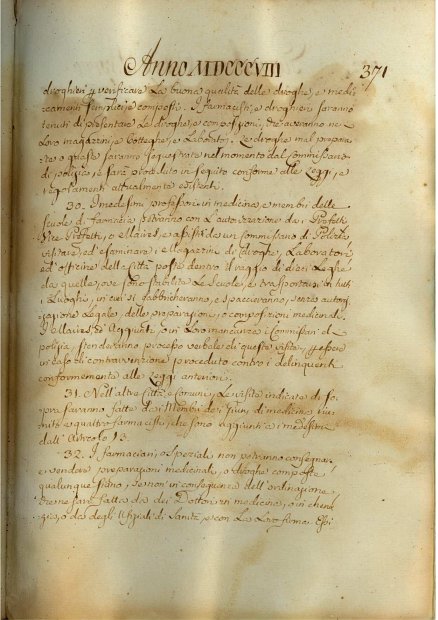 Anno MDCCCVIII 371
droghieri p verificare La buona qualità delle droghe, e medi-
camenti semplici e composti. I farmacisti, e droghieri saranno
tenuti di presentare Le droghe, e composizioni, che averanno ne
Loro magazzini, e botteghe, e Laboratorj. Le droghe mal prepara-
te o guaste saranno sequestrate nel momento dal Commissario
di polizia, e sarà proceduto in seguito conforme alle Leggi, e
regolamenti attualmente esistenti.
30. I medesimi professori in medicina, e membri delle
scuole di farmacia potranno con L'autorizzazione de i Prefetti
Vice-Prefetti, o Maires e assistiti da un Commissario di Polizia
visitare, ed esaminare i Magazzini di droghe, Laboratorj
ed officine delle Città poste dentro il raggio di dieci Leghe
da quelle, ove sono stabilite Le Scuole, e trasportarsi in tutti
i Luoghi, in cui si fabbricheranno, e spacceranno, senza autoriz-
zazione Legale, delle preparazioni, o composizioni medicinali.
I Maires, e Aggiunti, o in Loro mancanza i Commissarj di
polizia, stenderanno processo verbale di queste visite, p essere
in caso di contravvenzione proceduto contro i delinquenti
conformemente alle Leggi anteriori.
31. Nell'altre Città, e Comuni, Le visite indicate di so-
pra saranno fatte da i Membri dei Giurì di medicina riu-
niti a quattro farmacisti, che sono aggiunti a i medesimi
dall'Articolo 13.
32. I farmaciani, o Speziali non potranno consegnare
e vendere preparazioni medicinali, o droghe composte
qualunque siano, se non in consequenza dell'ordinazione
che ne sarà fatta da dei Dottori in medicina, o in chirur-
gia, o da degli Uffiziali di Sanità, e con La Loro firma. Essi